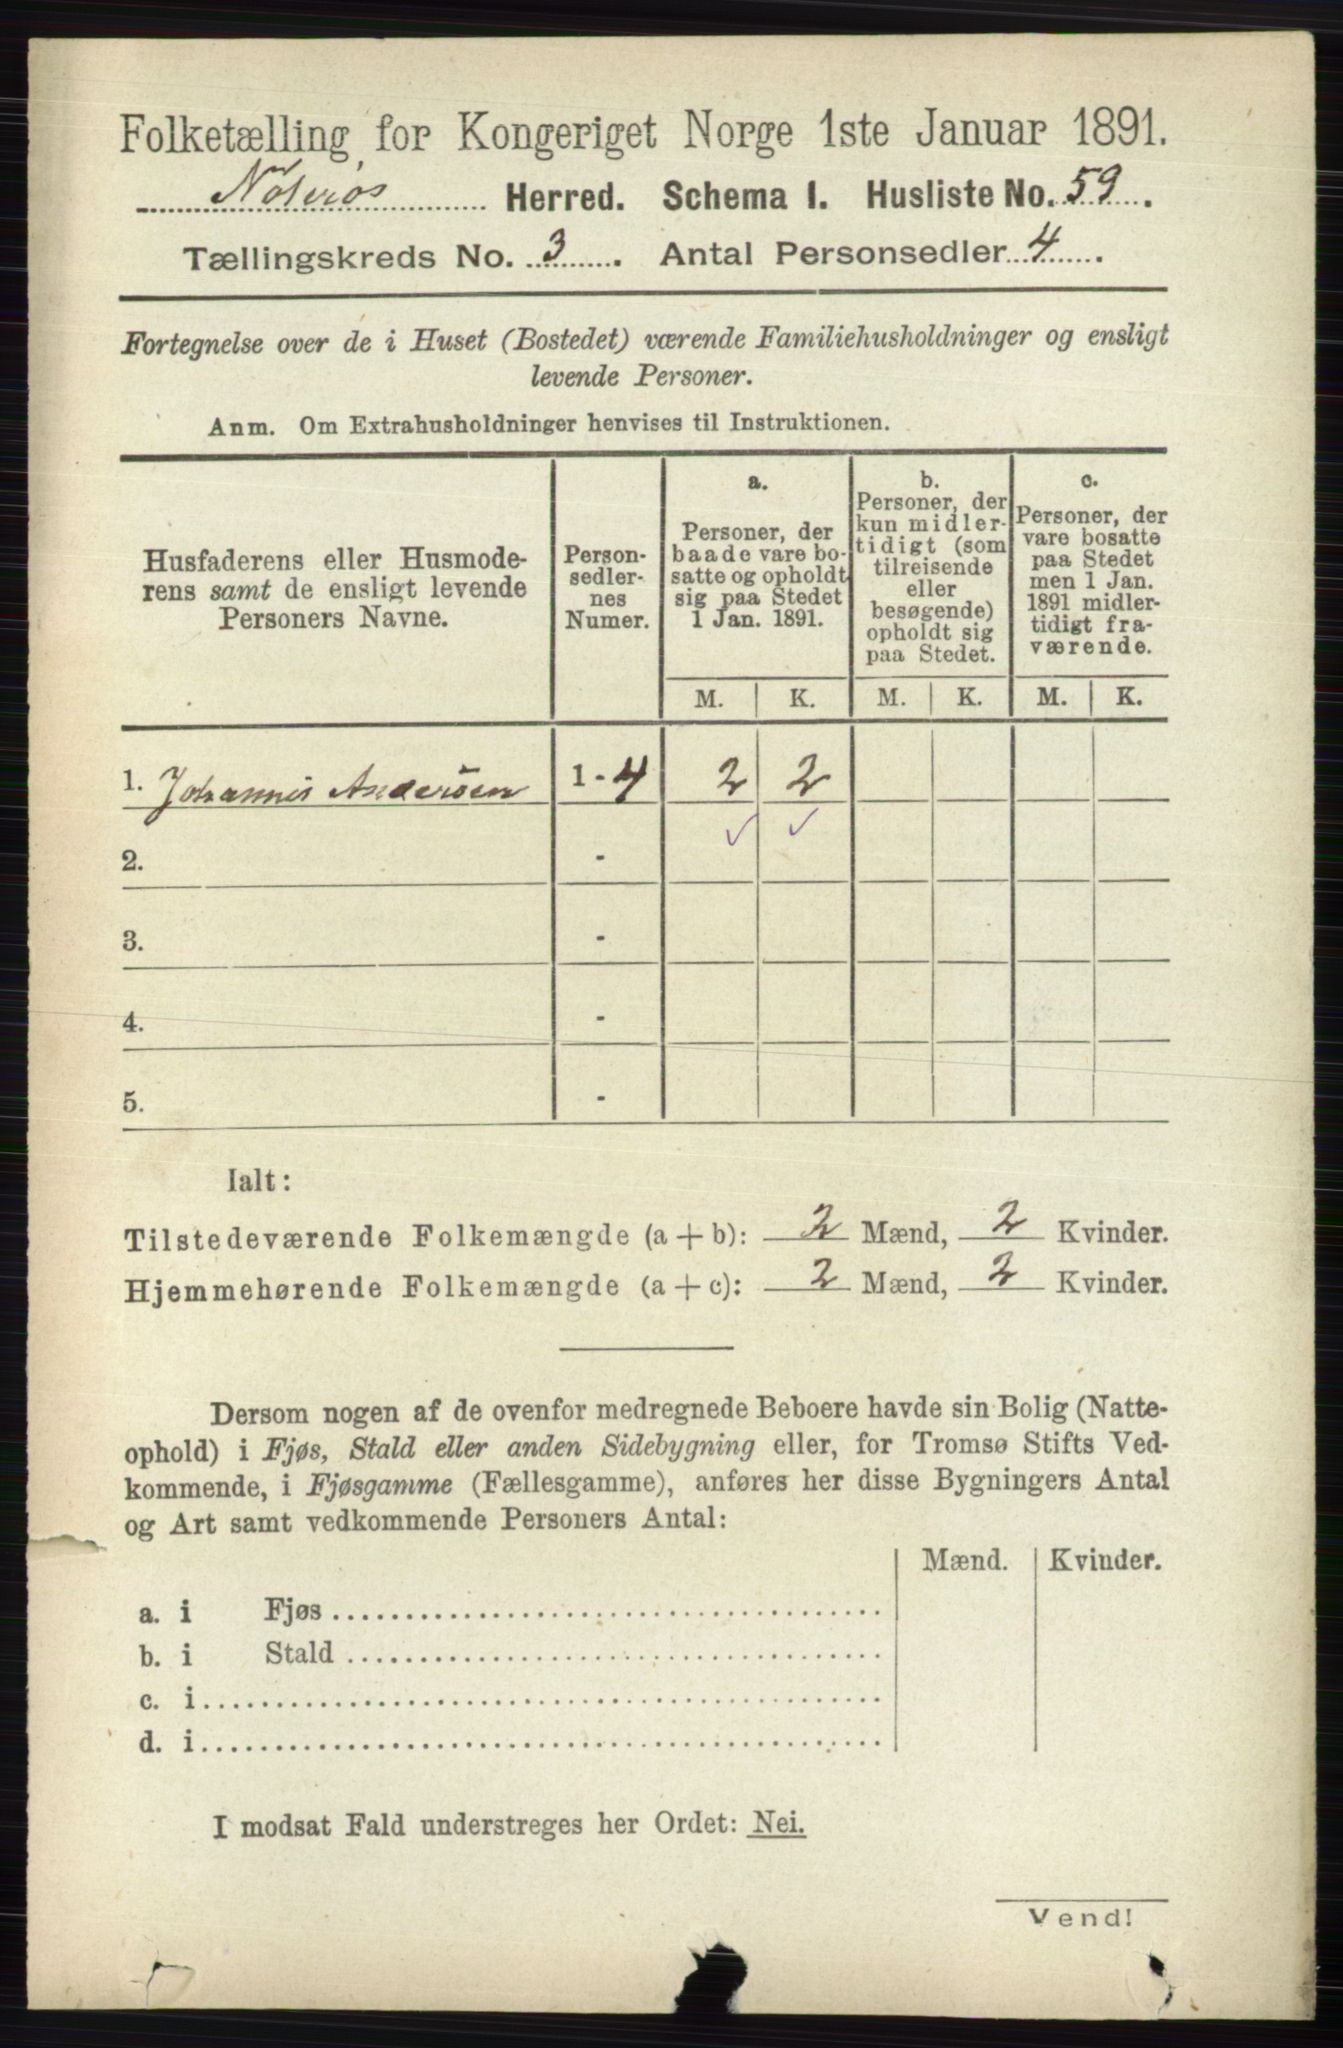 Folketælling for Kongeriget Norge 1ste Januar 1891.
Nøterøs Herred. Schema I. Husliste No. 59.
Tællingskreds No. 3. Antal Personsedler 4.
Fortegnelse over de i Huset (Bostedet) værende Familiehusholdninger og ensligt
levende Personer.
Anm. Om Extrahusholdninger henvises til Instruktionen.
Husfaderens eller Husmode-
rens samt de ensligt levende
Personers Navne.
Person-
sedler-
nes
Numer.
a.
Personer, der
baade vare bo-
satte og opholdt
sig paa Stedet
1 Jan. 1891.
b.
Personer, der
kun midler-
tidigt (som
tilreisende
eller
besøgende)
opholdt sig
paa Stedet.
c.
Personer, der
vare bosatte
paa Stedet
men 1 Jan.
1891 midler-
tidigt fra-
værende.
M. K. M. K. M. K.
1. Johannis Andersen 1-4 2 2
2. -
3. -
4. -
5. -
Ialt:
Tilstedeværende Folkemængde (a + b): 2 Mænd, 2 Kvinder.
Hjemmehørende Folkemængde (a + c): 2 Mænd, 2 Kvinder.
Dersom nogen af de ovenfor medregnede Beboere havde sin Bolig (Natte-
ophold) i Fjøs, Stald eller anden Sidebygning eller, for Tromsø Stifts Ved-
kommende, i Fjøsgamme (Fællesgamme), anføres her disse Bygningers Antal
og Art samt vedkommende Personers Antal:
Mænd. Kvinder.
a. i Fjøs
b. i Stald
c. i
d. i
I modsat Fald understreges her Ordet: Nei.
Vend!